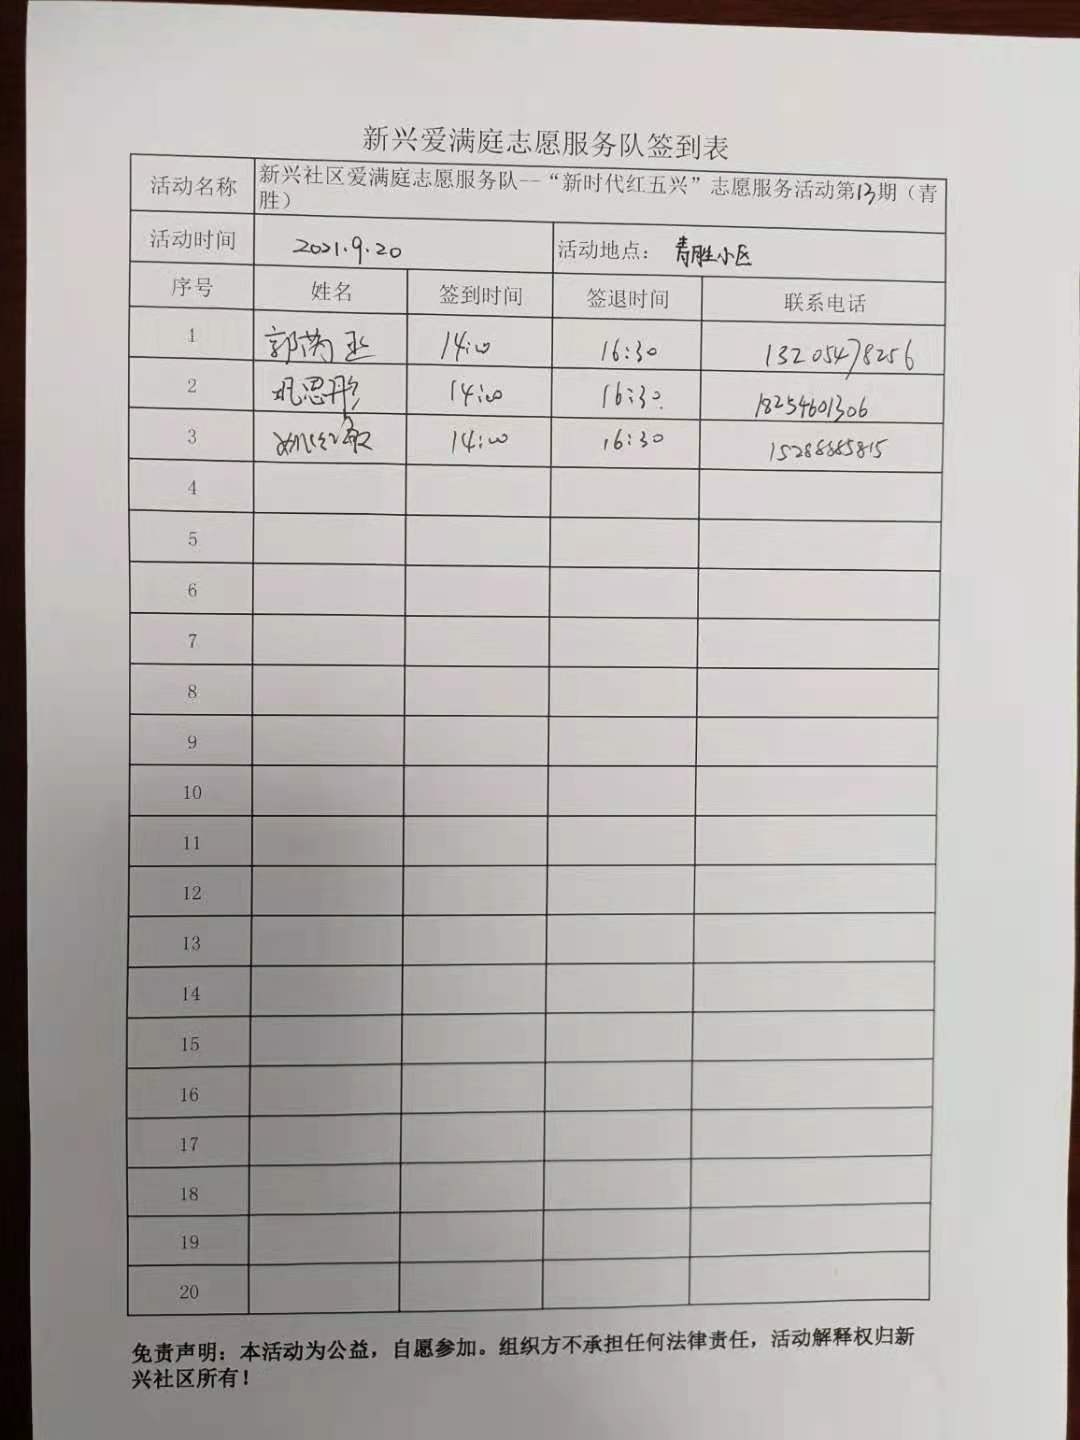 新兴爱满庭志愿服务队签到表
活动名称 新兴社区爱满庭志愿服务队--“新时代红五兴”志愿服务活动第13期（青
胜）
活动时间 2021.9.20 活动地点： 青胜小区
序号 姓名 签到时间 签退时间 联系电话
1 14:00 16:30 13205478256
2 14:00 16:30 18254601306
3 14:00 16:30 15288885815
4
5
6
7
8
9
10
11
12
13
14
15
16
17
18
19
20
免责声明：本活动为公益，自愿参加。组织方不承担任何法律责任，活动解释权归新
兴社区所有！